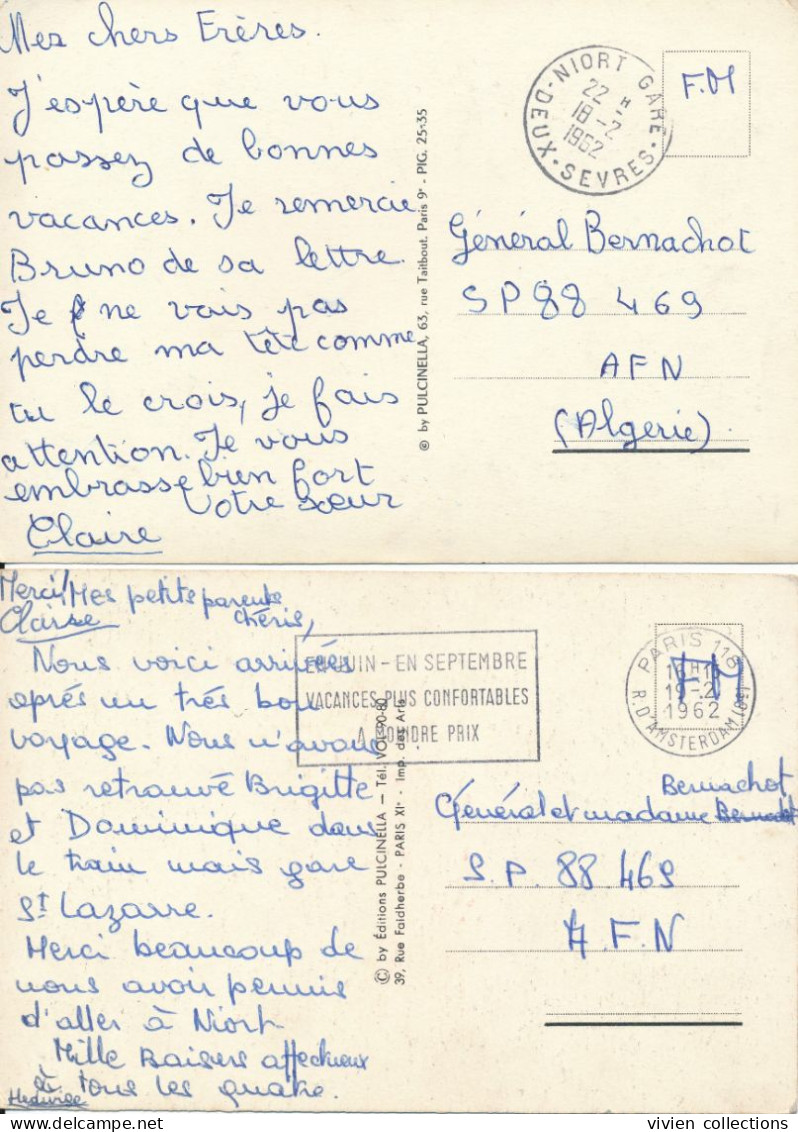 Mes chers Frères.
J'espère que vous
passez de bonnes
vacances. Je remercie
Bruno de sa lettre.
Je ne vais pas
perdre ma tête comme
tu le crois, je fais
attention. Je vous
embrasse bien fort
votre sœur
Claire
© by PULCINELLA, 63, rue Taitbout. Paris 9e - PIG. 25-35
NIORT GARE
22 H
18-2
1962
DEUX-SEVRES
F.M
Général Bernachot
SP 88 469
AFN
(Algerie).
Merci! Mes petits parents
chéris,
Claire
Nous voici arrivées
après un trés bon
voyage. Nous n'avons
pas retrouvé Brigitte
et Dominique dans
le train mais gare
St Lazarre.
Merci beaucoup de
nous avoir permis
d'aller à Niort
Mille Baisers affectueux
à tous les quatre.
Hedwige
EN JUIN - EN SEPTEMBRE
VACANCES PLUS CONFORTABLES
A MOINDRE PRIX
© by Éditions PULCINELLA — Tél. VOL 90-80
39, Rue Faidherbe - PARIS XIe - Imp. des Arts
PARIS 118
19-2
1962
R. D'AMSTERDAM (8e)
FM
Bernachot
Général et madame
S.P. 88 469
A.F.N
vivien collections